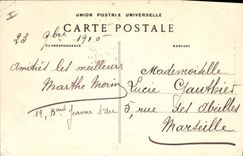 I
UNION POSTALE UNIVERSELLE
CARTE POSTALE
CORRESPONDANCE
ADRESSE
23 9bre 1905
Amitiés les meilleurs
Marthe Morin
19, Bard Jeanne d'Arc
Mademoiselle
Lucie Gauthier
5, rue des Abeilles
Marseille